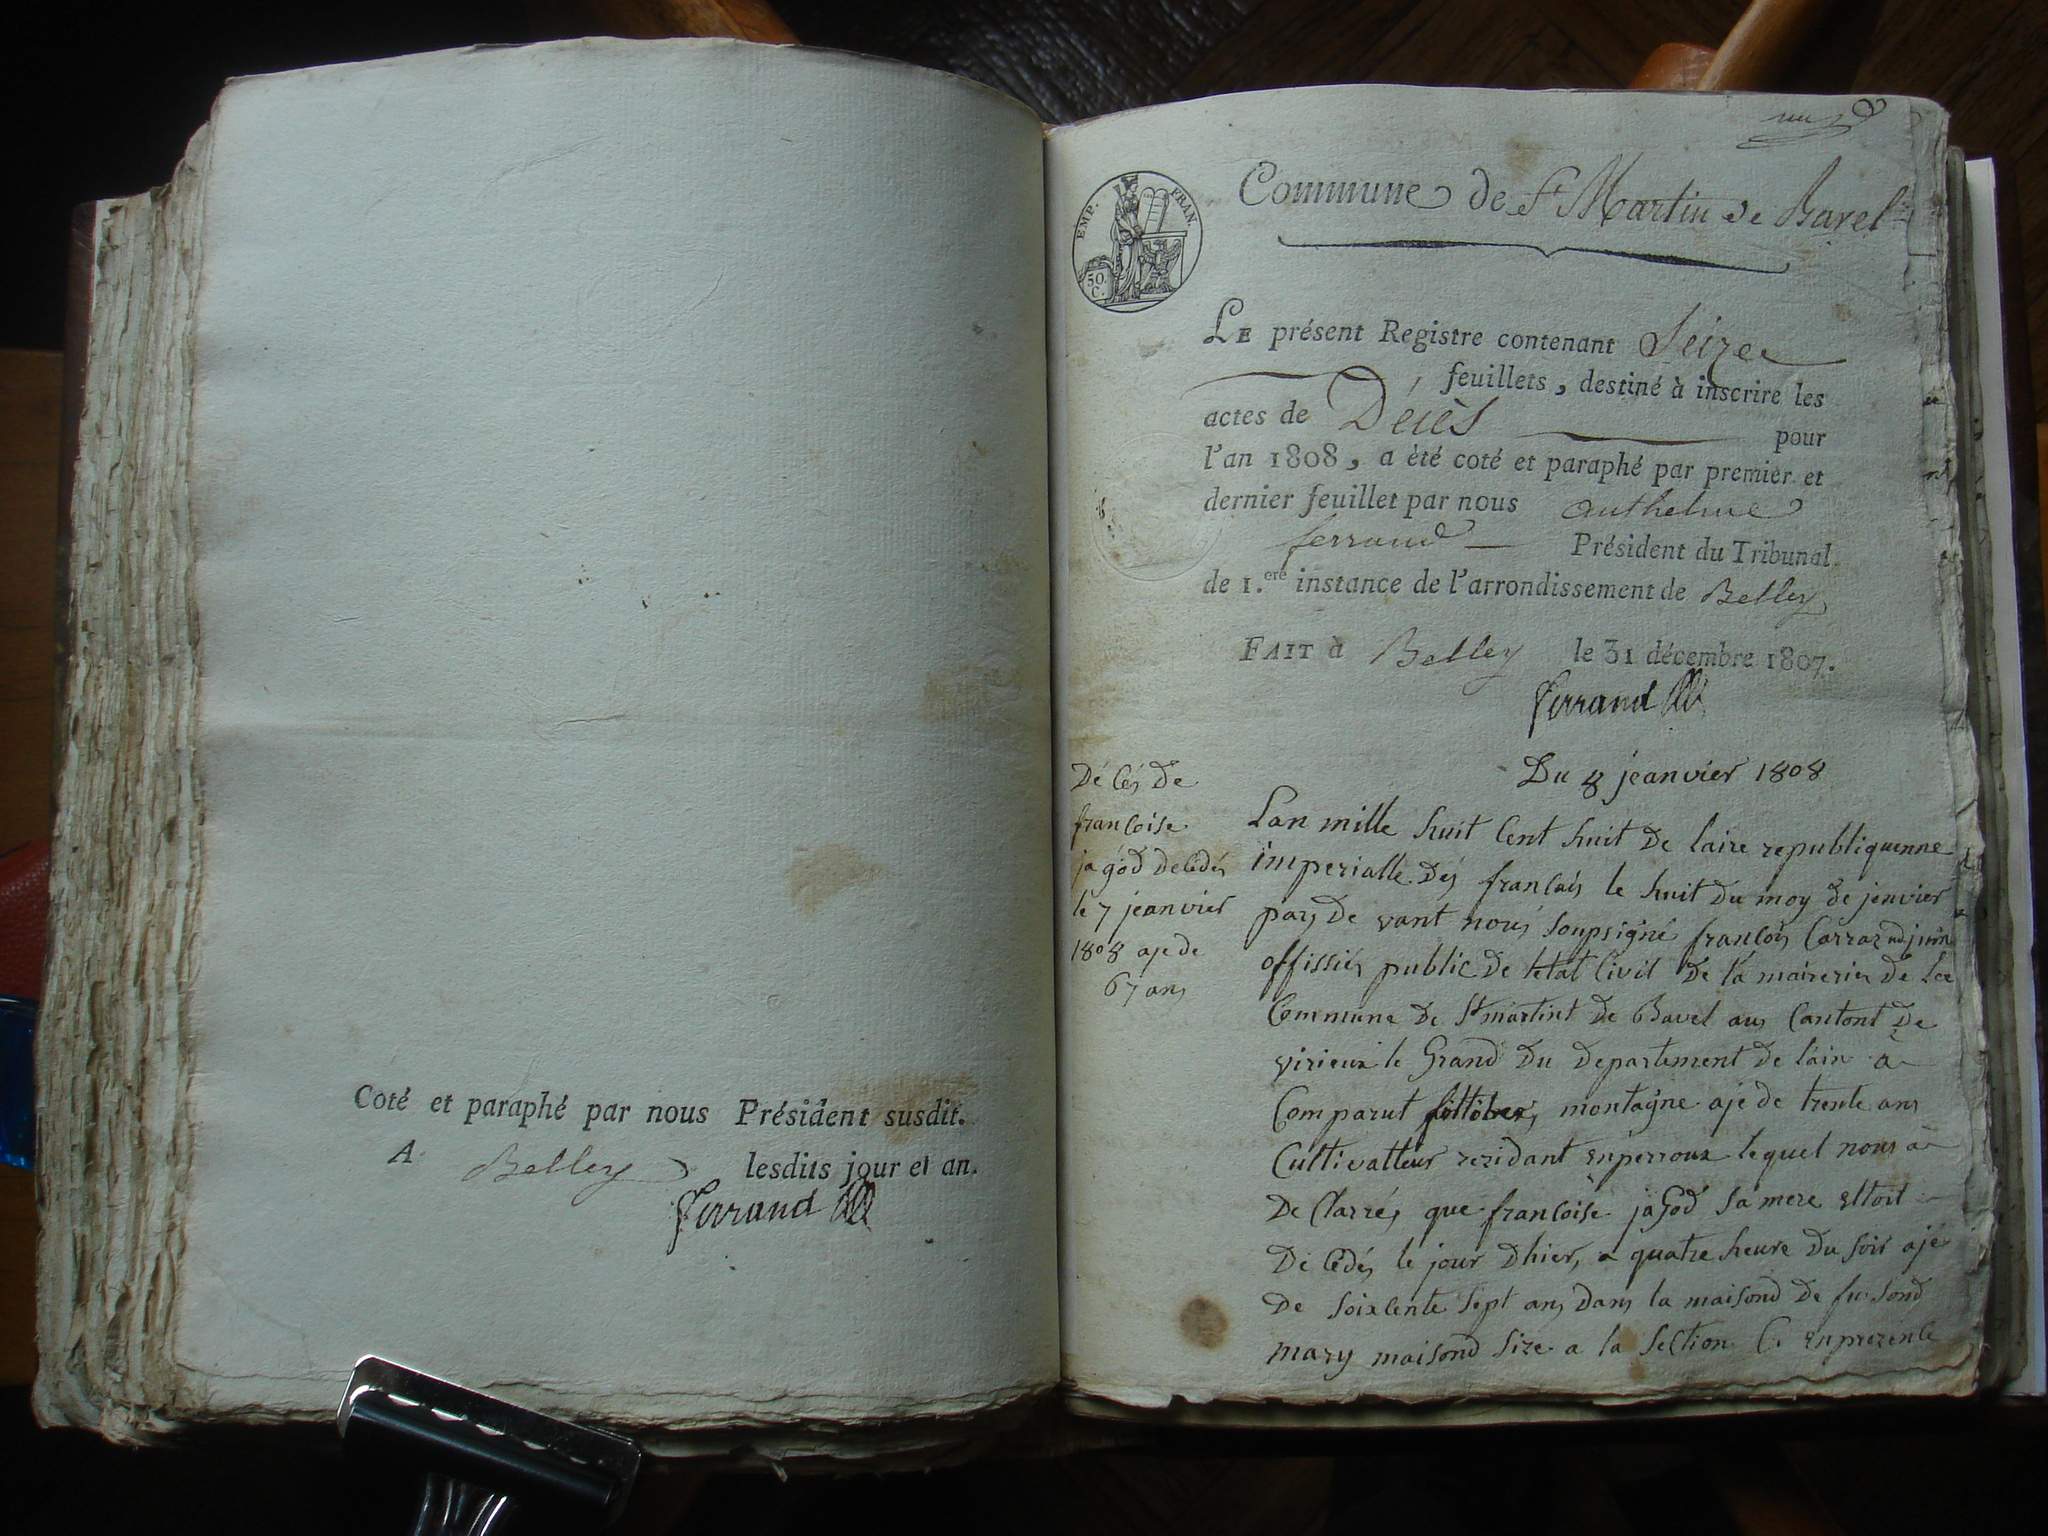 Coté et paraphé par nous Président susdit.
A Belley lesdits jour et an.
Ferrand
EMP. FRAN.
50. C.
Commune de St Martin de Bavel
LE présent Registre contenant Seize
feuillets, destiné à inscrire les
actes de Décès pour
l'an 1808, a été coté et paraphé par premier et
dernier feuillet par nous anthelme
ferrand Président du Tribunal
de 1.ere instance de l'arrondissement de Belley
FAIT à Belley le 31 décembre 1807.
Ferrand
Dé cés de
francoise
jagód decédés
le 7 jeanvier
1808 aje de
67 ans
Du 8 jeanvier 1808
Lan mille huit cent huit de laire republiquenne
imperialle des francais le huit du moy de jenvier
pars de vant nous soupsigné francois Carraz adjoin
offissiés public de letat civil de la mairerie de la
Commune de St martint de Bavel aus Cantont de
virieux le Grand du departement de lain a
Comparut montagne aje de trente ans
Cultivatteur rezidant enperroux lequel nous a
De Clarrés que francoise jagod sa mere ettoit
De cédés le jour dhier, a quatre heure du soir ajé
De soixcente sept ans dans la maisond de fu sond
mary maisond size a la section C. enprezence